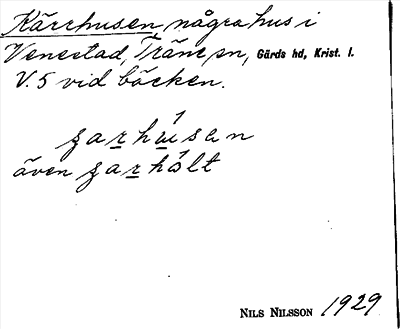 Kärrhusen, några hus i
Venestad, Träne sn, Gärds hd, Krist. l.
V. 5 vid bäcken.
även
NILS NILSSON 1929